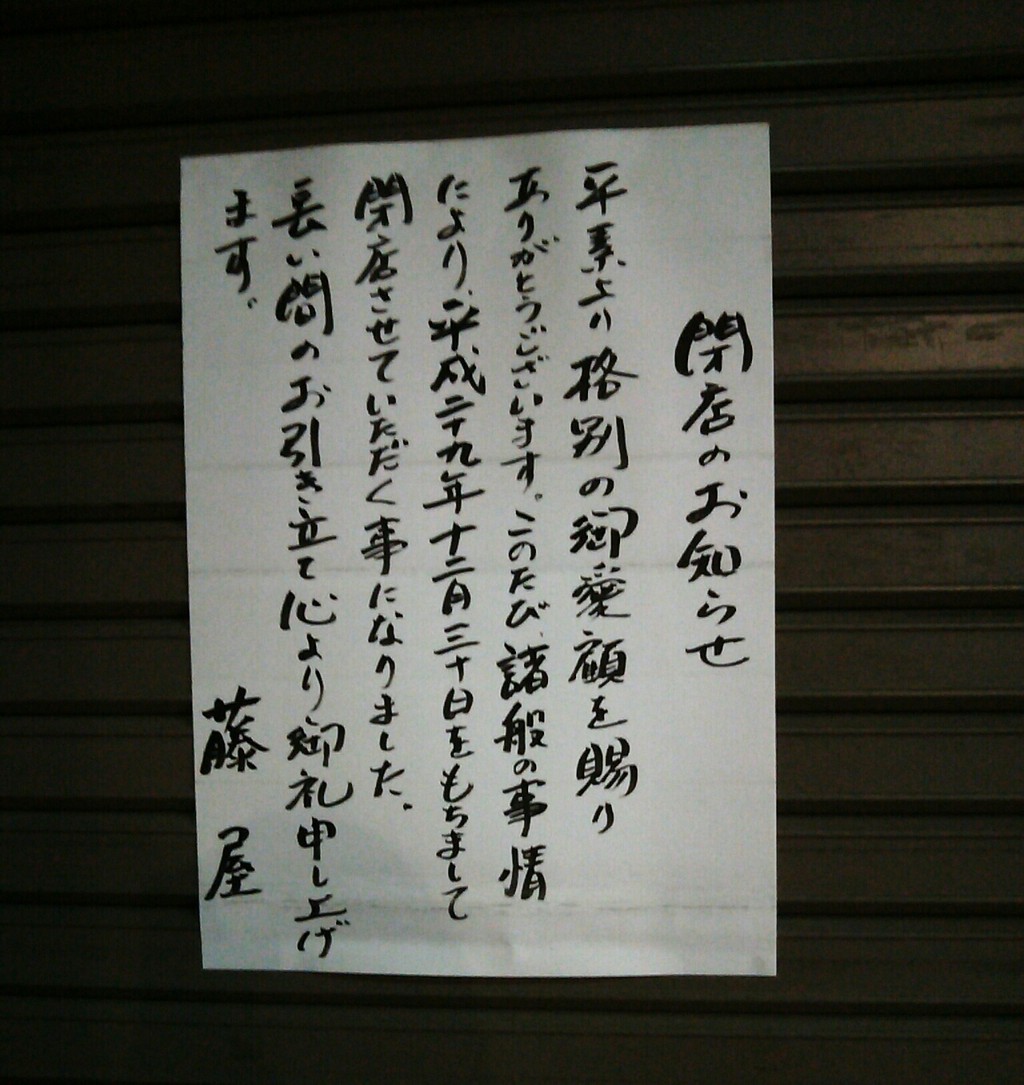 閉店のお知らせ
平素より格別の御愛顧を賜り
ありがとうございます。このたび、諸般の事情
により、平成二十九年十二月三十日をもちまして
閉店させていただく事になりました。
長い間のお引き立て心より御礼申し上げ
ます。
藤屋